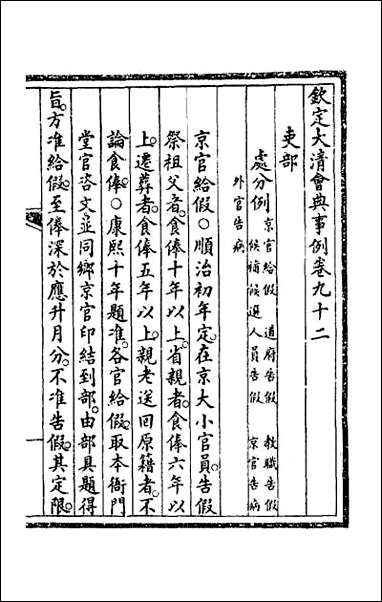 欽定大清會典事例卷九十二
吏部
處分例京官給假 道府告假 教職告假
候補候選人員告假 京官告病
外官告病
京官給假○順治初年定。在京大小官員。告假
祭祖父者。食俸十年以上。省親者。食俸六年以
上。遷葬者。食俸五年以上。親老送回原籍者。不
論食俸。○康熙十年題准。各官給假。取本衙門
堂官咨文。並同鄉京官印結到部。由部具題得
旨。方准給假。至俸深於應升月分。不准告假。其定限。